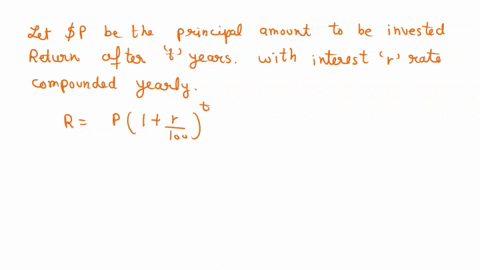 Let $P be the principal amount to be invested
Return after 't' years. with interest 'r' rate
compounded yearly.
R = P(1 + r/100)^t